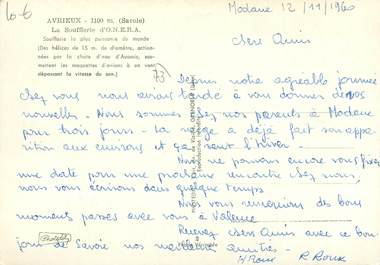 10-6
AVRIEUX - 1100 m. (Savoie)
La Soufflerie d'O.N.E.R.A.
Soufflerie la plus puissante du monde
(Des hélices de 15 m. de diamètre, actionnées par la chute d'eau d'Aussois, soumettent les maquettes d'avions à un vent dépassant la vitesse du son.)
73
Modane 12/11/1960
Chers Amis
Depuis notre agréable journée
chez vous nous avions tardé à vous donner de nos
nouvelles - Nous sommes chez nos parents à Modane
pour trois jours - La neige a déjà fait son appa-
rition aux environs et ça sent l'hiver -
Nous ne pouvons encore vous fixer
une date pour une prochaine rencontre chez nous,
nous vous écrirons dans quelque temps
Nous vous remercions des bons
moments passés avec vous à Valence
Recevez chers Amis avec ce bon-
jour de Savoie nos meilleures amitiés -
R Roux